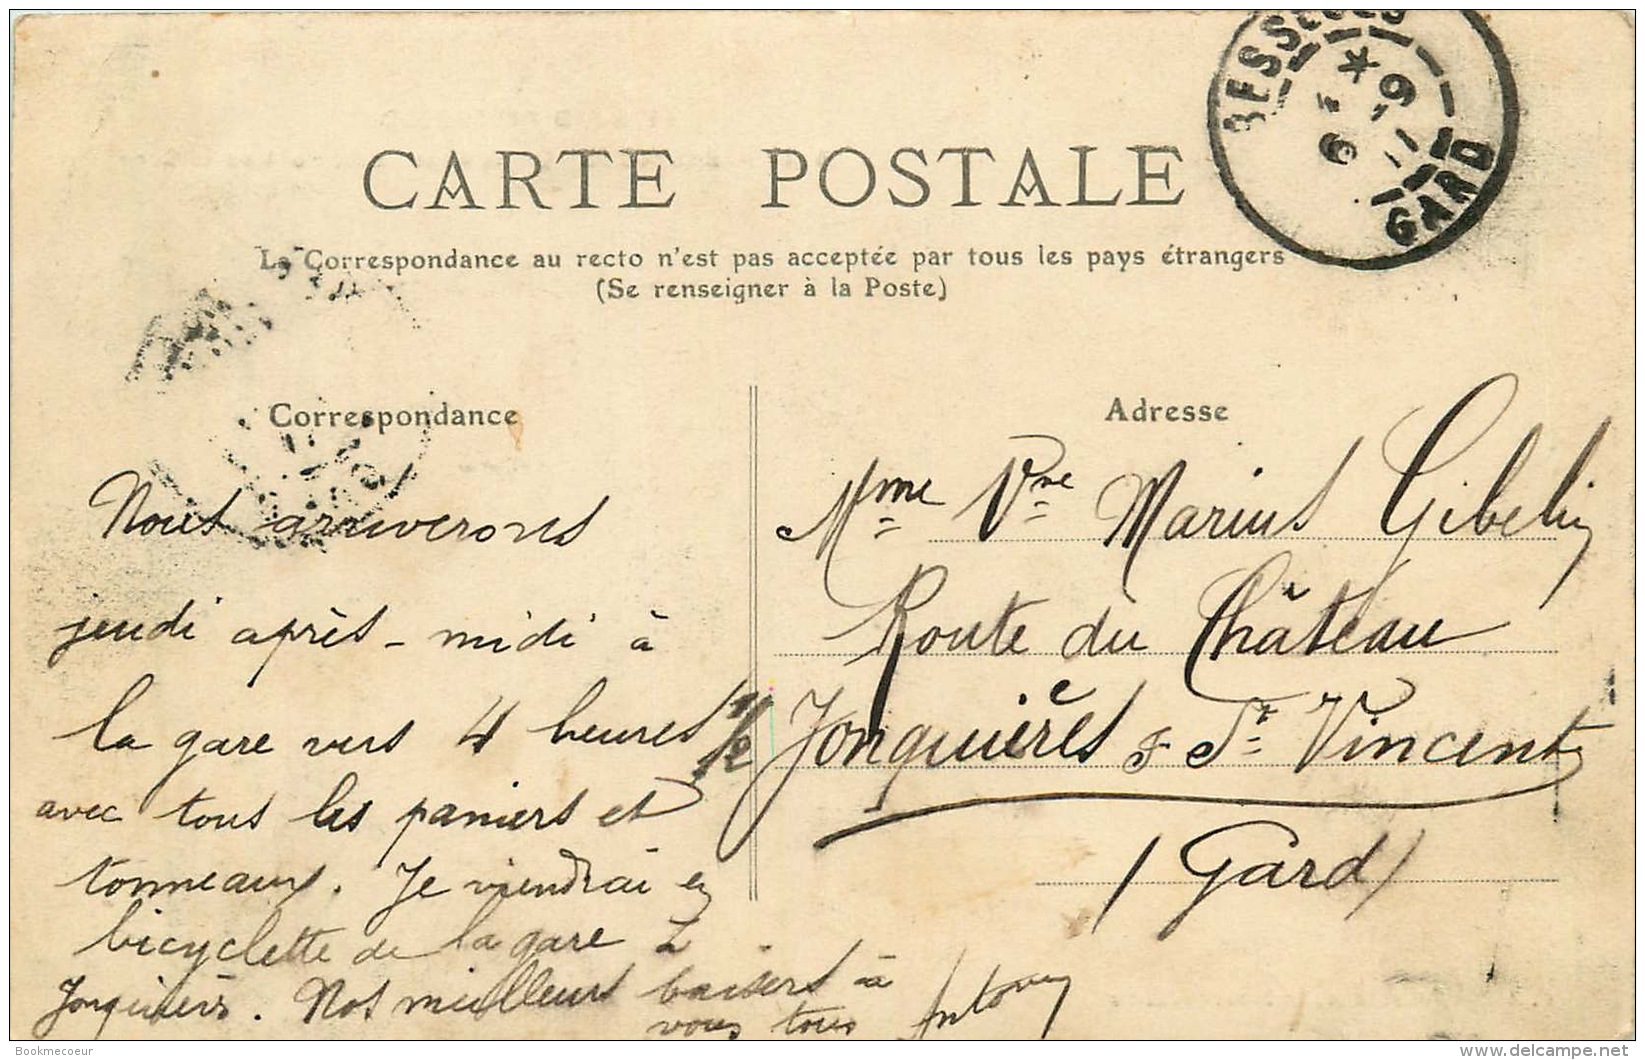 BESSEGES
GARD
CARTE POSTALE
La Correspondance au recto n'est pas acceptée par tous les pays étrangers
(Se renseigner à la Poste)
Correspondance
Nous arriverons
jeudi après-midi à
la gare vers 4 heures 1/2
avec tous les paniers et
tonneaux. Je viendrai en
bicyclette de la gare
Jonquières. Nos meilleurs baisers à
vous tous Antony
Adresse
Mme Vve Marius Gibelin
Route du Château
Jonquières & St Vincent
(Gard)
Bookmecoeur
delcampe.net